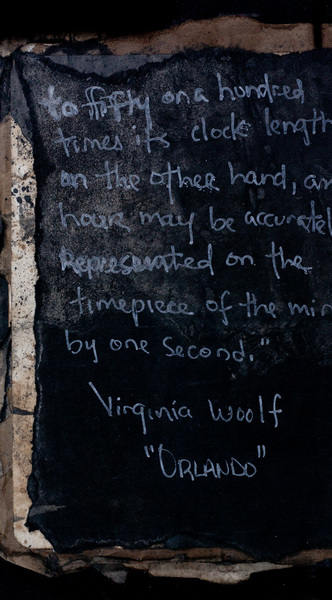 to fifty on a hundred
times its clock length
on the other hand, an
hour may be accuratel
represented on the
timepiece of the min
by one second."
Virginia Woolf
"ORLANDO"